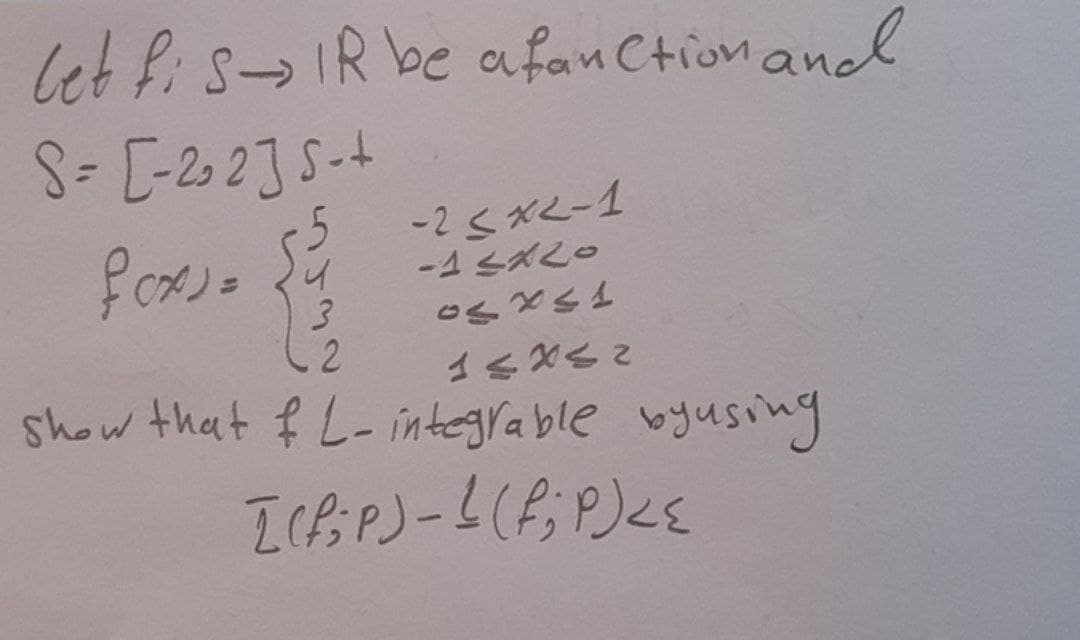 Let f: S → IR be a fanction and
S = [-2, 2] S-t
f(x) = { 5 -2 ≤ x < -1
4 -1 ≤ x < 0
3 0 ≤ x ≤ 1
2 1 ≤ x ≤ 2
show that f L- integrable by using
Ī(f; P) - L(f; P) < ε